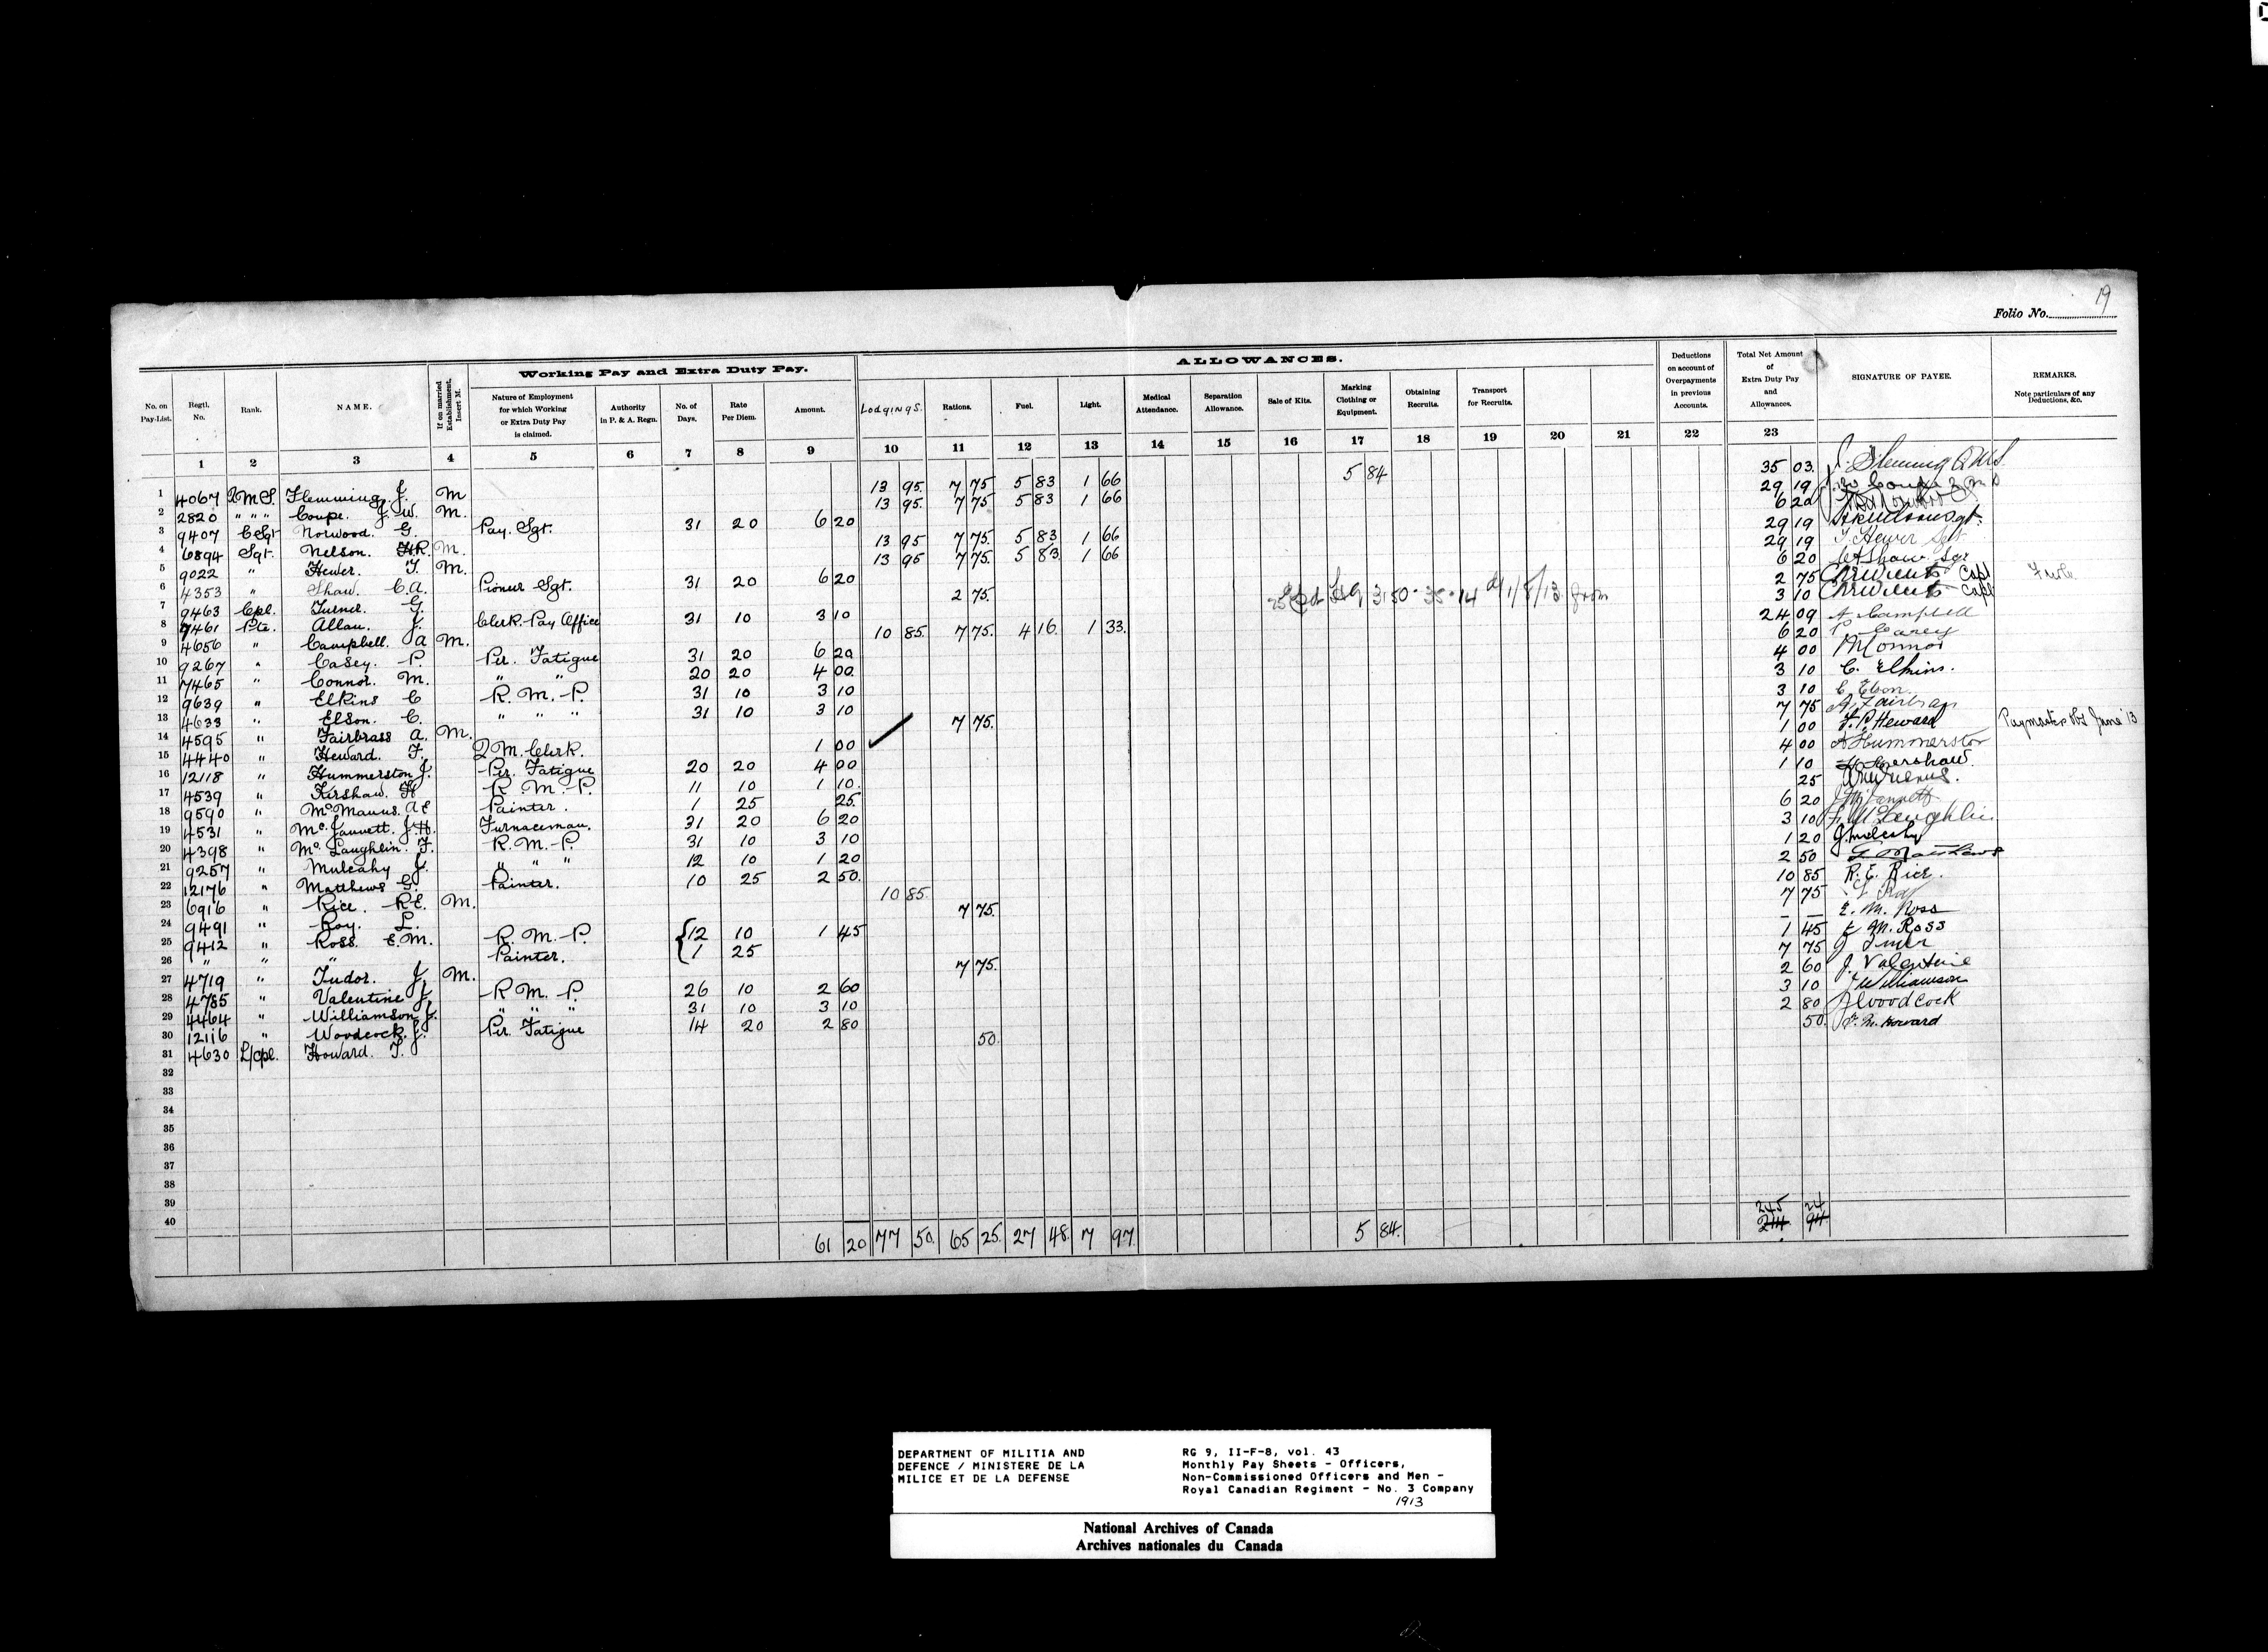 19
Folio No.
Working Pay and Extra Duty Pay. ALLOWANCES.
No. on Pay-List. Regtl. No. Rank. NAME. If on married Establishment, Insert M. Nature of Employment for which Working or Extra Duty Pay is claimed. Authority in P. & A. Regn. No. of Days. Rate Per Diem. Amount. Lodgings. Rations. Fuel. Light. Medical Attendance. Separation Allowance. Sale of Kits. Marking Clothing or Equipment. Obtaining Recruits. Transport for Recruits. Deductions on account of Overpayments in previous Accounts. Total Net Amount of Extra Duty Pay and Allowances. SIGNATURE OF PAYEE. REMARKS. Note particulars of any Deductions, &c.
1 2 3 4 5 6 7 8 9 10 11 12 13 14 15 16 17 18 19 20 21 22 23
1 4067 QMS. Flemming. J. M 13 95. 7 75 5 83 1 66 5 84 35 03. J. Flemming QMS.
2 2820 " " " Coupe. J. W. M. 13 95. 7 75 5 83 1 66 29 19
3 9407 C Sgt Norwood. G. Pay. Sgt. 31 20 6 20 6 20
4 6894 Sgt. Nelson. H.R. M. 13 95 7 75. 5 83 1 66 29 19
5 9022 " Hewer. T. M. 13 95 7 75. 5 83. 1 66 29 19 T. Hewer Sgt.
6 4353 " Shaw. C.A. Pioneer Sgt. 31 20 6 20 6 20 C A Shaw Sgt
7 9463 Cpl. Turner. G. 2 75. 2 75 Capt
8 7461 Pte. Allan. J. Clerk. Pay Office 31 10 3 10 3 10 Capt
9 4656 " Campbell. A M. 10 85. 7 75. 4 16. 1 33. 24 09 A Campbell
10 9267 " Casey. P. Per. Fatigue 31 20 6 20 6 20 P Casey
11 7465 " Connor. M. " " 20 20 4 00. 4 00 M Connor
12 9639 " Elkins C R. M. P. 31 10 3 10 3 10 C. Elkins.
13 4633 " Elson. C. " " " 31 10 3 10 3 10 C Elson.
14 4595 " Fairbrass A. M. 7 75. 7 75 A. Fairbrass
15 4440 " Heward. F. Q M. Clerk. 1 00 1 00 F. P. Heward Paymaster June 13
16 12118 " Hummerston J. Per. Fatigue 20 20 4 00 4 00 Hummerston
17 4539 " Kershaw. H R. M. P. 11 10 1 10. 1 10 H Kershaw.
18 9590 " McManus. A E Painter. 1 25 25. 25
19 4531 " McJannett. J.H. Furnaceman. 31 20 6 20 6 20 J. McJannett
20 4398 " McLaughlin. F. R. M. P. 31 10 3 10 3 10 F. McLaughlin
21 9257 " Mulcahy J. " " " 12 10 1 20 1 20 J. Mulcahy
22 12176 " Matthews G. Painter. 10 25 2 50. 2 50 G Matthews
23 6916 " Rice. R E. M. 10 85. 10 85 R. E. Rice.
24 9491 " Roy. L. 7 75. 7 75 L Roy
25 9412 " Ross. E.M. R. M. P. 12 10 1 45 — — E. M. Ross
26 " " " Painter. 1 25 1 45 E M. Ross
27 4719 " Tudor. J M. 7 75. 7 75
28 4785 " Valentine J. R M. P. 26 10 2 60 2 60 J. Valentine
29 4464 " Williamson J. " " " 31 10 3 10 3 10 J Williamson
30 12116 " Woodcock. J. Per. Fatigue 14 20 2 80 2 80 J Woodcock
31 4630 L/Cpl. Howard. T. 50. 50.
32
33
34
35
36
37
38
39
40
245 24
214 94
61 20 77 50. 65 25. 27 48. 7 97. 5 84.
DEPARTMENT OF MILITIA AND DEFENCE / MINISTERE DE LA MILICE ET DE LA DEFENSE
RG 9, II-F-8, vol. 43
Monthly Pay Sheets - Officers,
Non-Commissioned Officers and Men -
Royal Canadian Regiment - No. 3 Company
1913
National Archives of Canada
Archives nationales du Canada